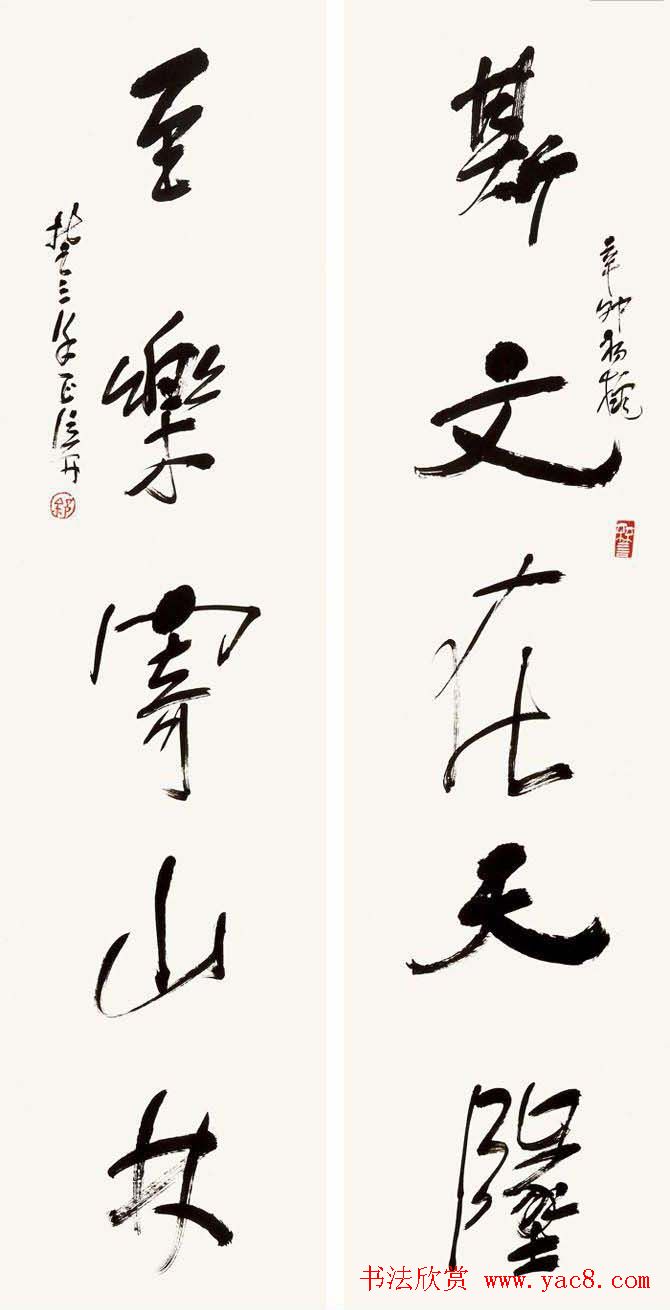 辛卯
斯文在天墬
至樂寄山林
书法欣赏 www.yac8.com